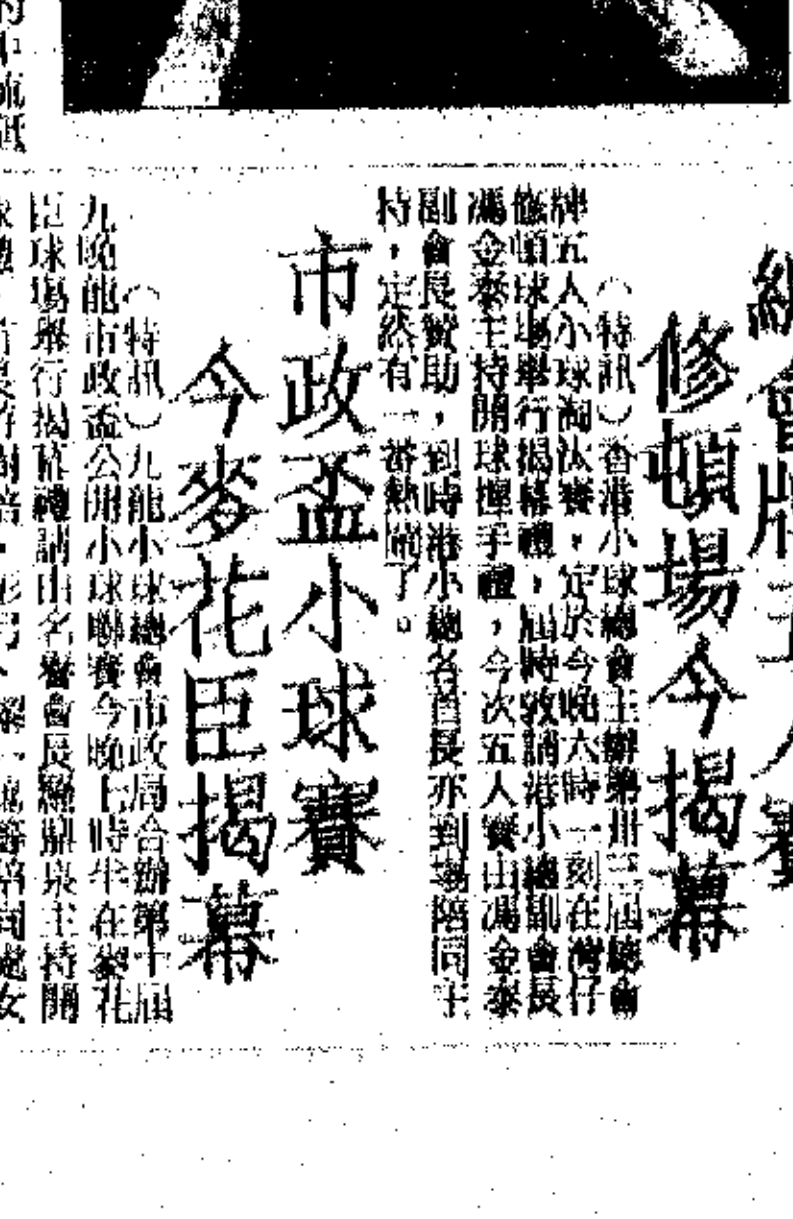 總會牌五人賽
修頓場今揭幕
（特訊）香港小球總會主辦第卅三屆總會
牌五人小球淘汰賽，定於今晚六時一刻在灣仔
修頓球場舉行揭幕禮，屆時敦請港小總副會長
馮金泰主持開球握手禮，今次五人賽由馮金泰
副會長贊助，到時港小總各首長亦到場陪同主
持，定然有一番熱鬧了。
市政盃小球賽
今麥花臣揭幕
（特訊）九龍小球總會市政局合辦第十屆
九晚龍市政盃公開小球聯賽今晚七時半在麥花
臣球場舉行揭幕禮請由名譽會長羅鼎泉主持開